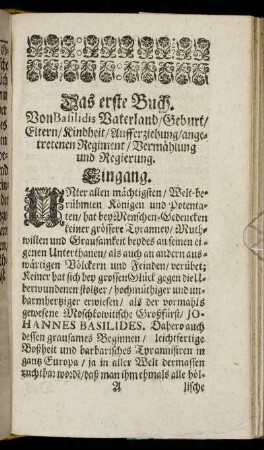 Das erste Buch.
Von Basilidis Vaterland/ Geburt/
Eltern/ Kindheit/ Aufferziehung/ ange-
tretenen Regiment/ Vermählung
und Regierung.
Eingang.
UNter allen mächtigsten/ Welt-be-
rühmten Königen und Potenta-
ten/ hat bey Menschen-Gedencken
keiner grössere Tyranney/ Muth-
willen und Grausamkeit beydes an seinen ei-
genen Unterthanen/ als auch an andern aus-
wärtigen Völckern und Feinden/ verübet;
Keiner hat sich bey grossen Glück gegen die U-
berwundenen stoltzer/ hochmüthiger und un-
barmhertziger erwiesen/ als der vormahls
gewesene Moschkowitische Großfürst/ JO-
HANNES BASILIDES. Dahero auch
dessen grausames Beginnen/ leichtfertige
Boßheit und barbarisches Tyrannisiren in
gantz Europa/ ja in aller Welt dermassen
ruchtbar worde/ daß man ihm ehmals alle höl-
A lische